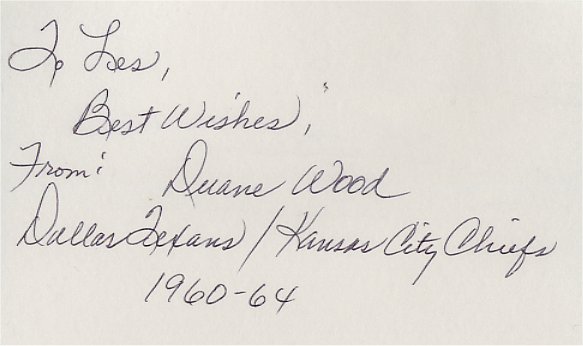 To Les,
Best Wishes,
From: Duane Wood
Dallas Texans / Kansas City Chiefs
1960-64